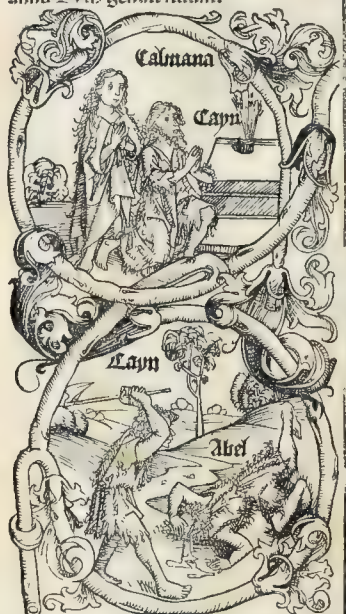 Calmana
Cayn
Cayn
Abel